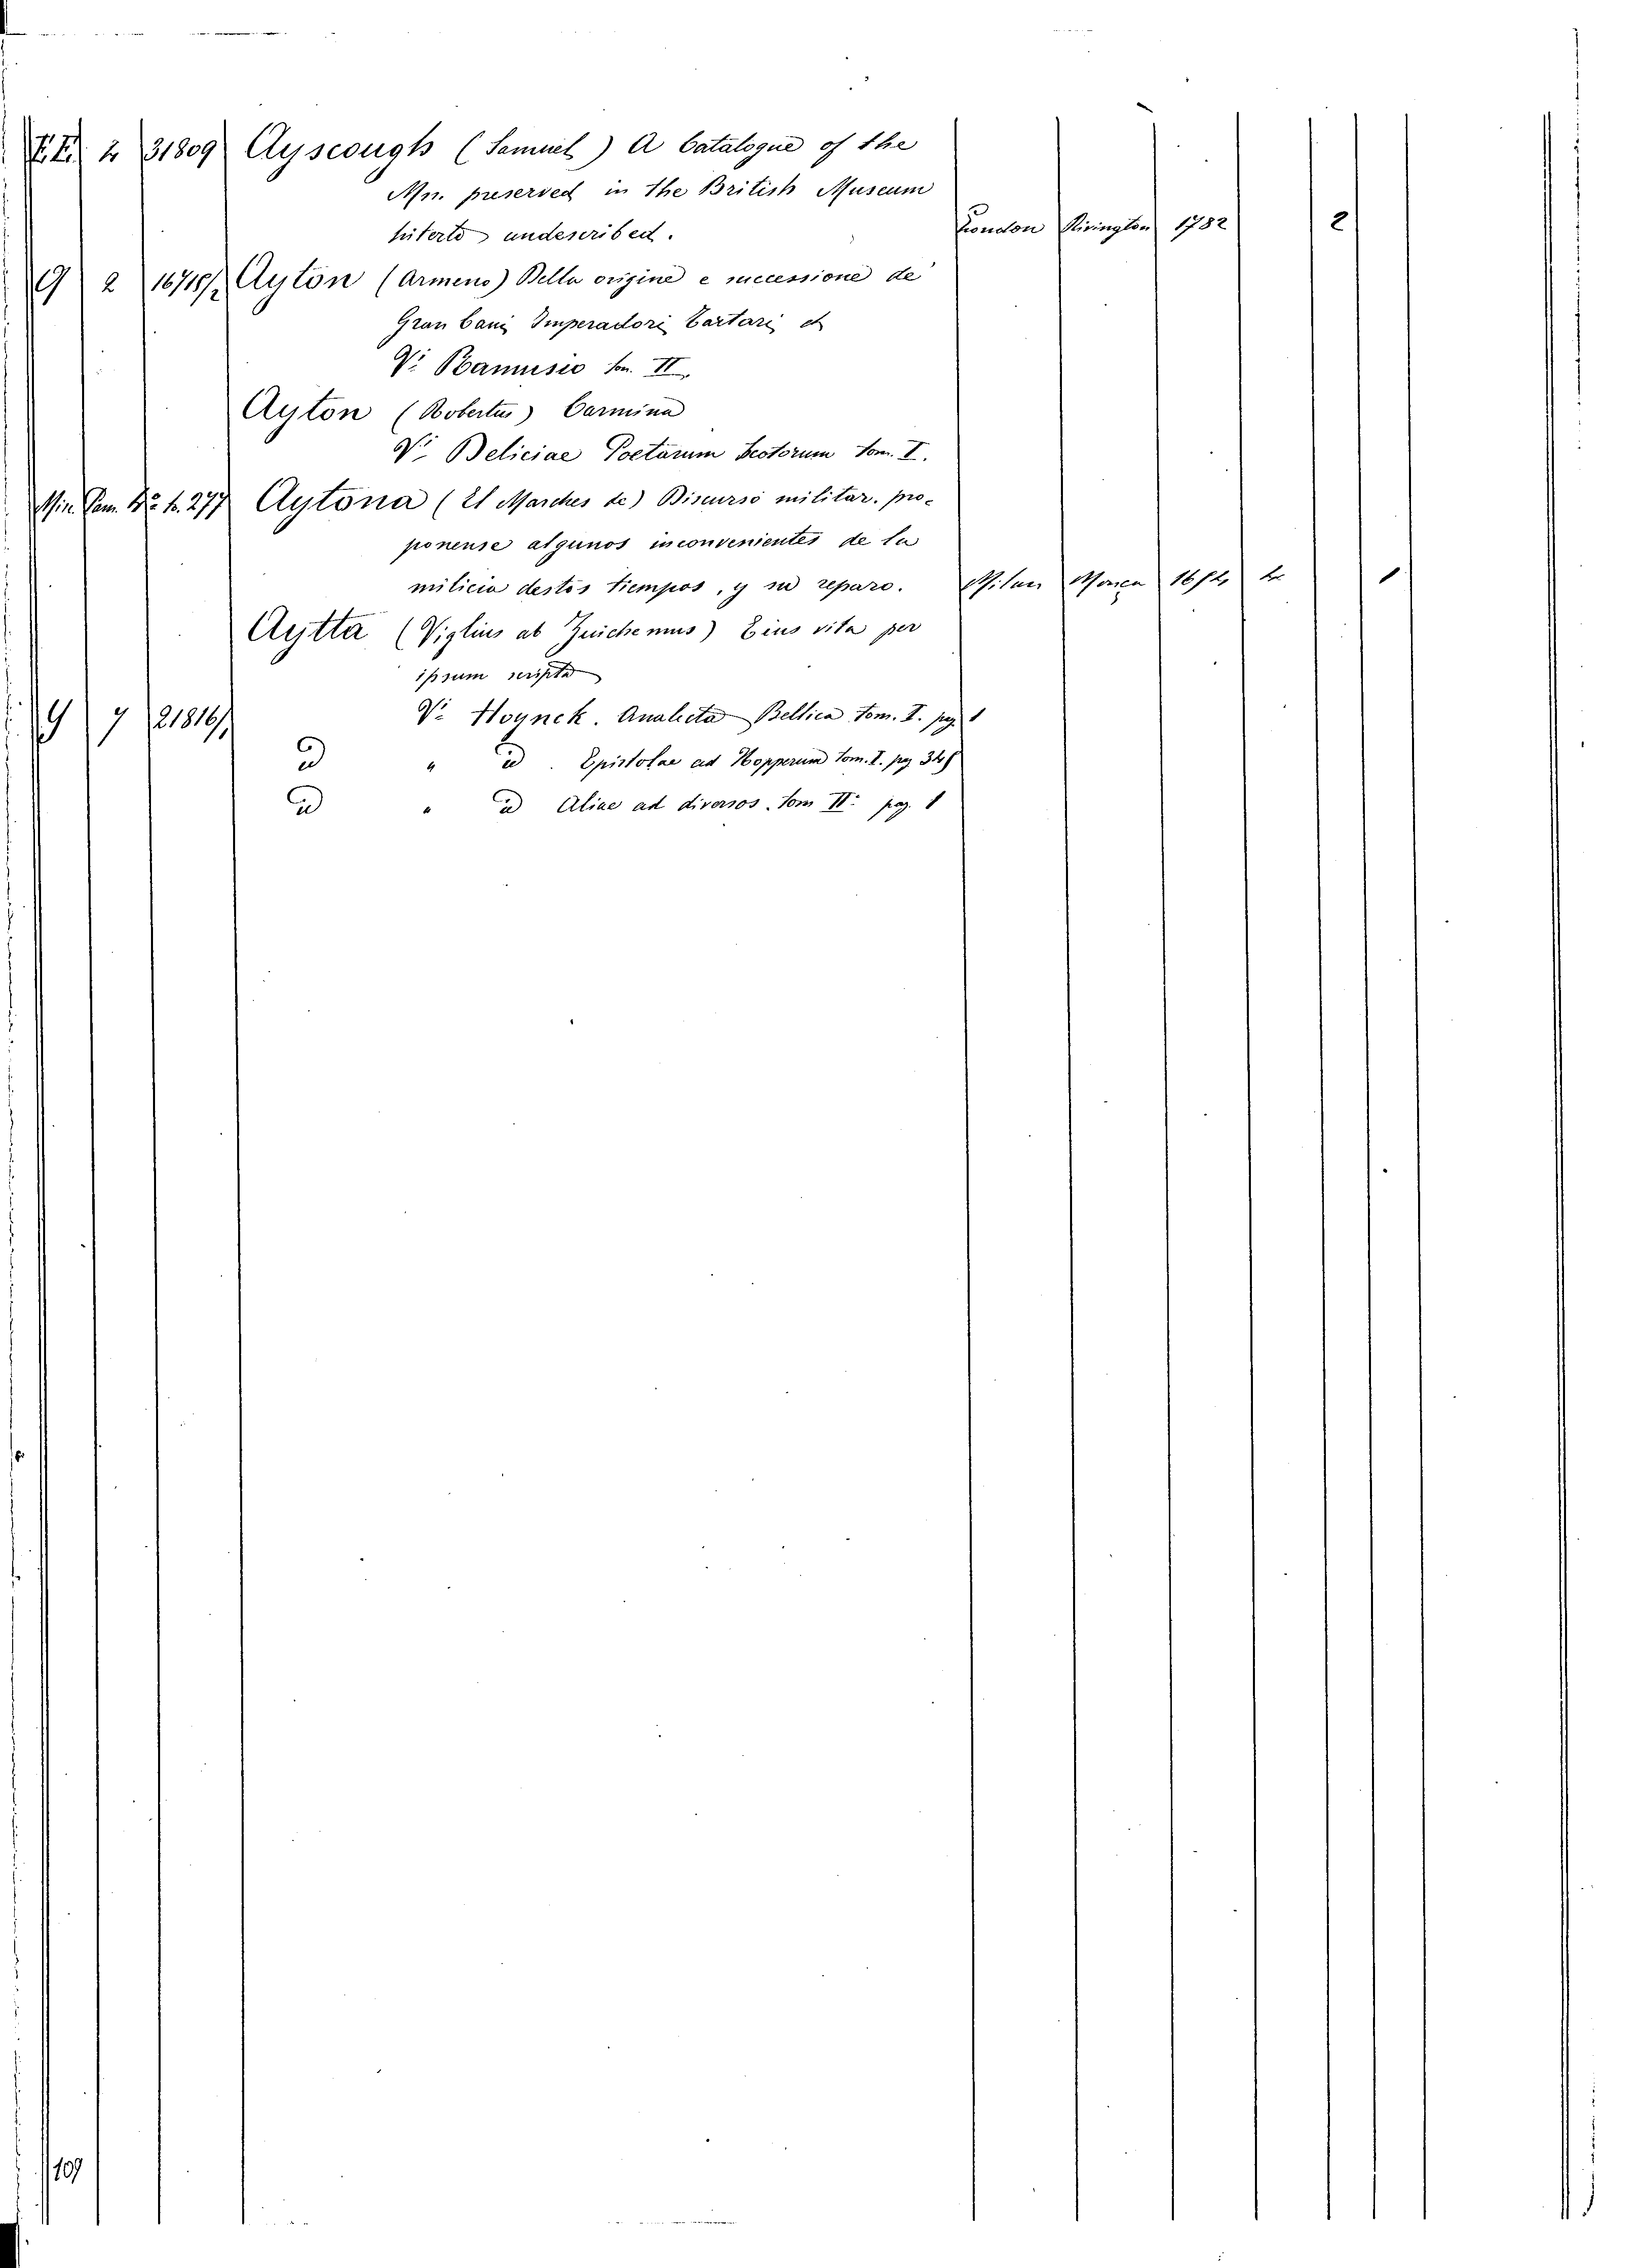 2 31809 Ayscough (Samuel) A Catalogue of the
Mn. preserved in the British Museum
hiterto undescribed. London Rivington 1782 2
G 2 16718/2 Ayton (Armeno) Della origine e successione de
Gran Cani Imperadori Tartari
V. Ramusio tom. II
Ayton (Robertus) Carmina
V. Deliciae Poetarum Scotorum tom. I.
277 Aytona (El Marches de) Discurso militar. pro-
ponense algunos inconvenientes de la
milicia destos tiempos, y su reparo. Milan 4 1
Aytta (Viglius ab Zuichemus) Eius vita per
ipsum scripta
G 7 21816/1 V. Hoynck. Analecta Bellica tom. I. pag 1
id " id. Epistolae ad Hopperum tom. I. pag
id " id Aliae ad diversos. tom II. pag. 1
109